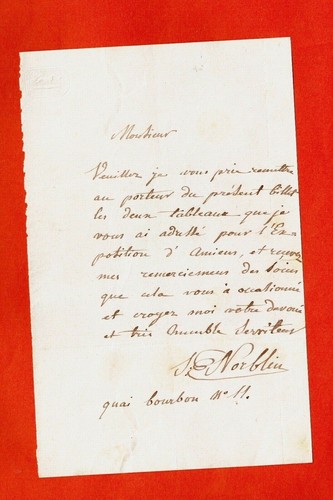 Monsieur
Veuillez je vous prie remettre
au porteur du présent billet
les deux tableaux que je
vous ai adressé pour l'Ex-
position d'Amiens, et recevez
mes remerciemens des soins
que cela vous a occasionné
et croyez moi votre dévoué
et très humble serviteur
S. Norblin
quai bourbon nº 11.